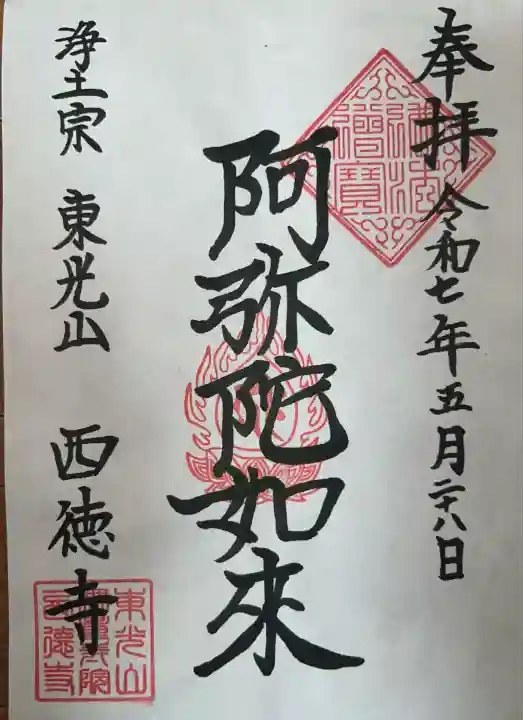 奉拝 令和七年五月二十八日
阿弥陀如来
浄土宗 東光山 西徳寺
佛法僧寶
東光山
西德寺